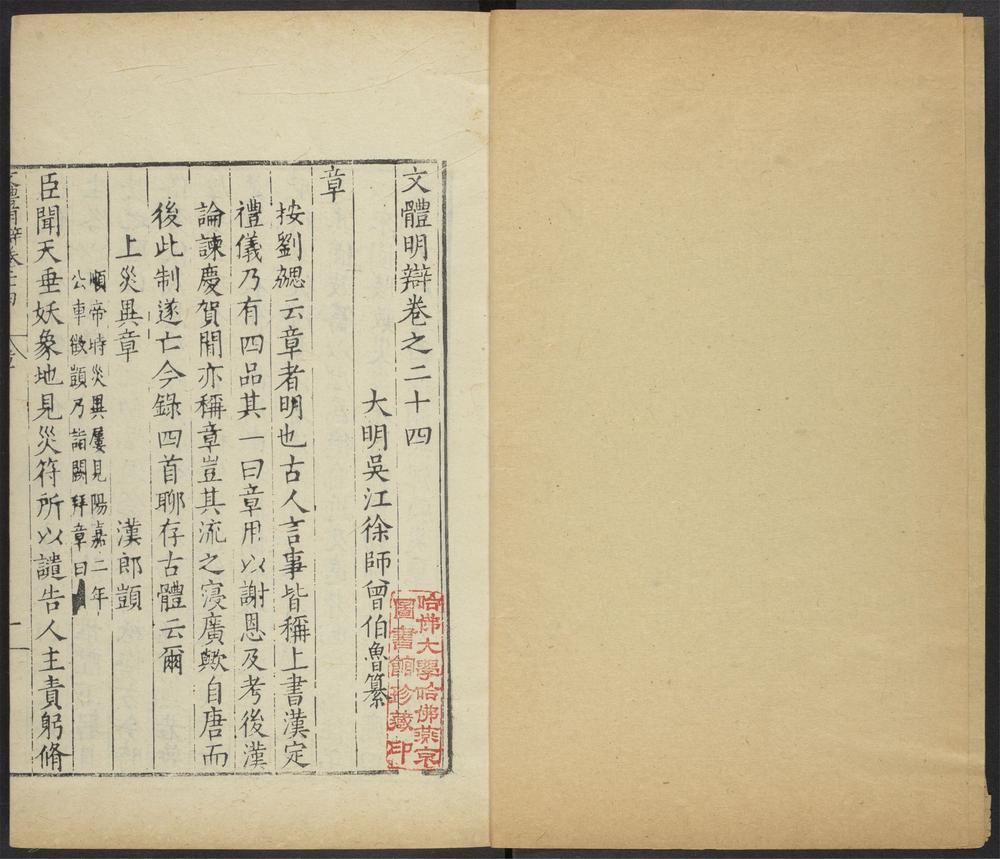 文體明辯卷之二十四
大明吳江徐師曾伯魯纂
章
按劉勰云章者明也古人言事皆稱上書漢定
禮儀乃有四品其一曰章用以謝恩及考後漢
論諫慶賀間亦稱章豈其流之寖廣歟自唐而
後此制遂亡今錄四首聊存古體云爾
上災異章　漢郎顗
順帝時災異屢見陽嘉二年
公車徵顗乃詣闕拜章曰
臣聞天垂妖象地見災符所以譴告人主責躬脩
哈佛大學哈佛燕京
圖書館珍藏印